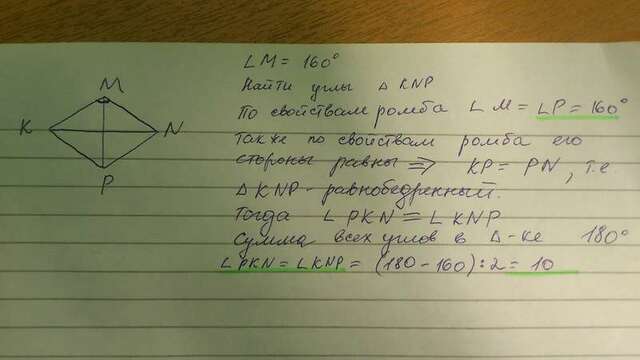 ∠M = 160°
Найти углы △ KNP
M
K
N
P
По свойствам ромба ∠M = ∠P = 160°
Также по свойствам ромба его
стороны равны ⇒ KP = PN, т.е.
△ KNP - равнобедренный.
Тогда ∠PKN = ∠KNP
Сумма всех углов в △-ке 180°
∠PKN = ∠KNP = (180-160):2 = 10